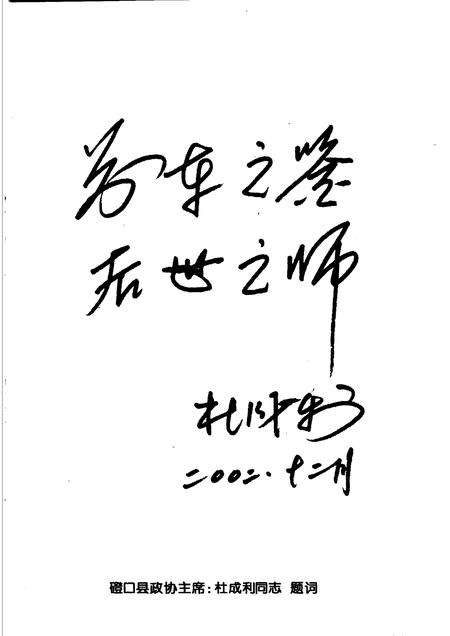 前车之鉴
后世之师
杜成利
二〇〇二.十二月
磴口县政协主席：杜成利同志 题词